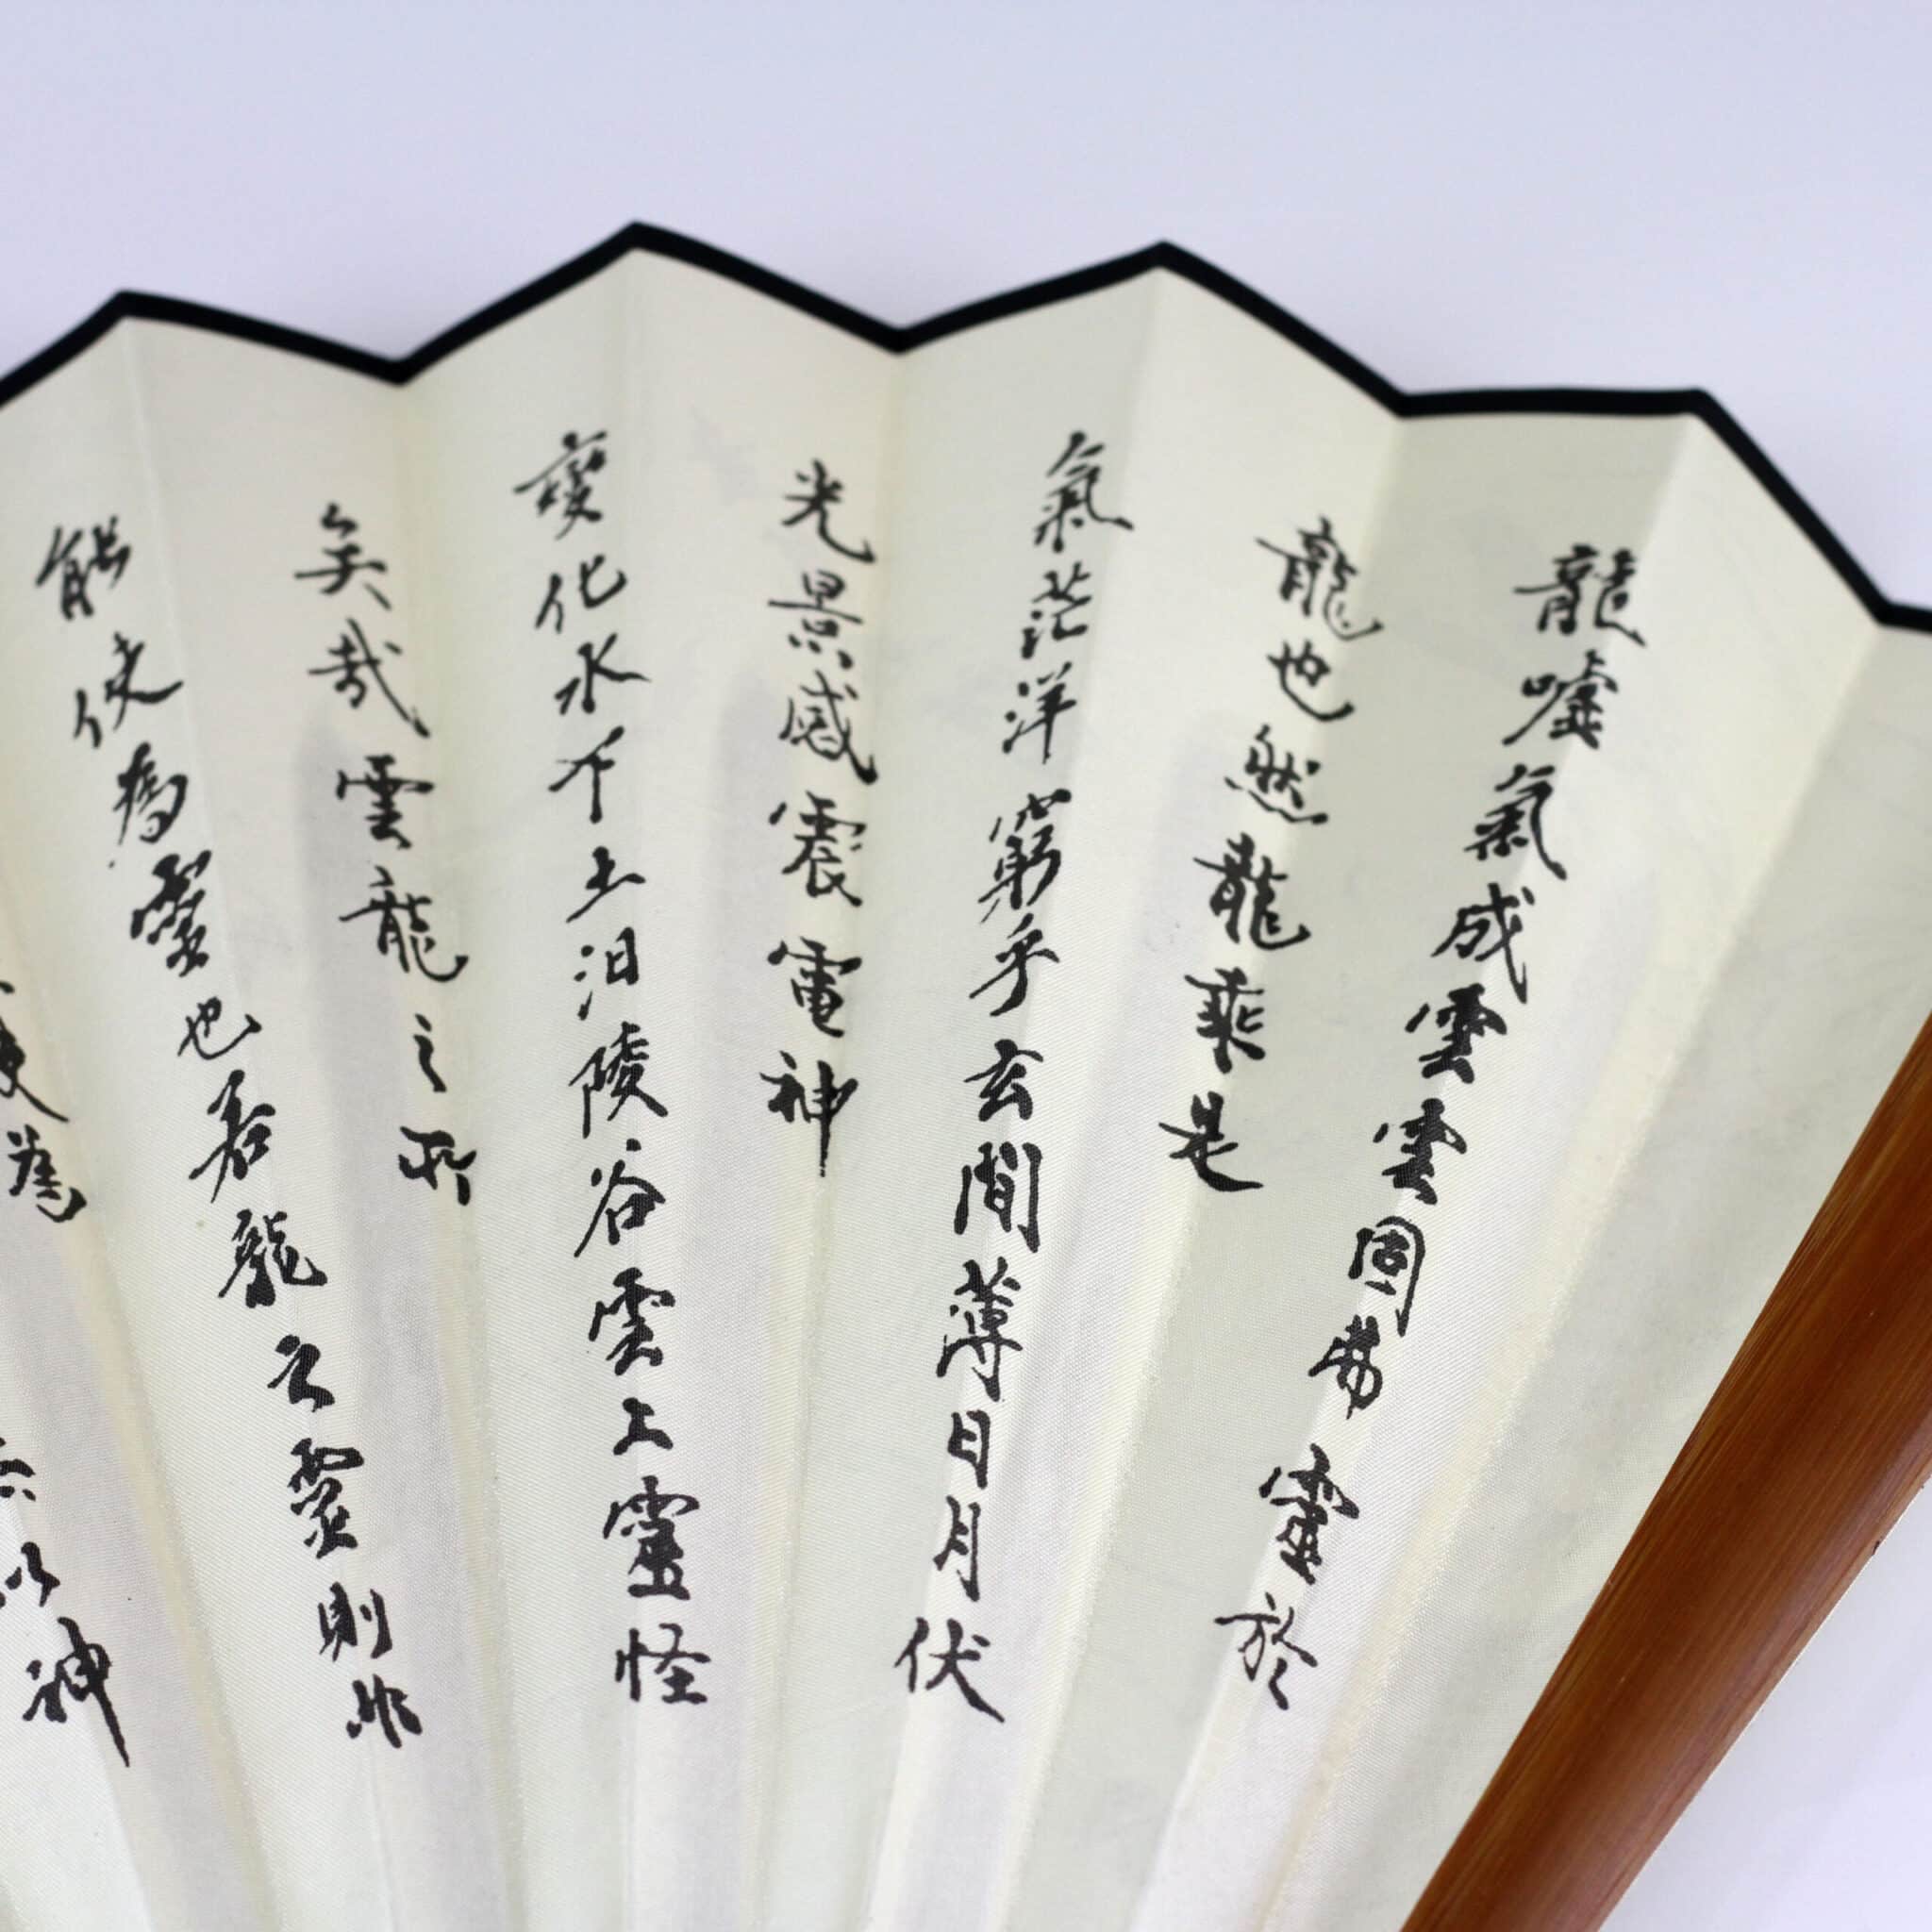 龍噓氣成雲雲固弗靈於
龍也然龍乘是
氣茫洋窮乎玄間薄日月伏
光景感震電神
變化水下土汩陵谷雲亦靈怪
矣哉雲龍之所
能使為靈也若龍之靈則非
使為
以神